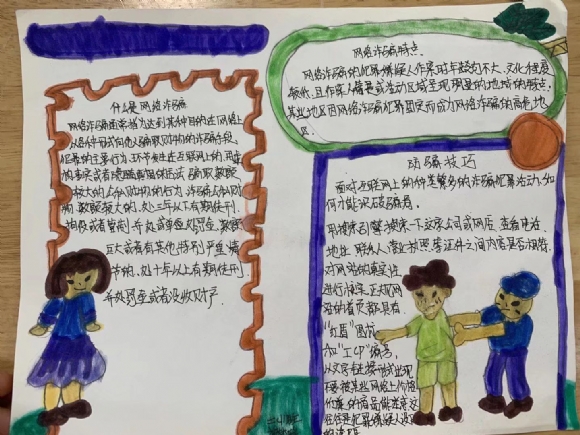 什么是网络诈骗
网络诈骗通常为达到某种目的在网络上
以各种形式向他人骗取财物的诈骗手段,
犯罪的主要行为、环节发生在互联网上的,用
事实或者隐瞒真相的方法,骗取数额
较大的公私财物的行为,诈骗公私财
物,数额较大的,处三年以下有期徒刑、
拘役或者管制,并处或单处罚金,数额
巨大或者有其他特别严重情
节的,处十年以上有期徒刑
并处罚金或者没收财产.
网络诈骗特点.
网络诈骗的犯罪嫌疑人作案时年龄均不大,文化程度
较低,且作案人籍贯或活动区域呈现明显的地域的特点,
某些地区因网络诈骗犯罪固定而成为网络诈骗的高危地
区.
防骗技巧
面对互联网上的种类繁多的诈骗犯罪活动,如
何才能识破骗局.
用搜索引擎搜索一下这家公司或网店,查看电话、
地址、联系人、营业执照等证件之间内容是否相符,
对网站的真实性
进行核实.正规网
站的首页都具有
"红盾"图标
和"ICP"编号,
以文字链接形式出现
不要被某些网络上价格